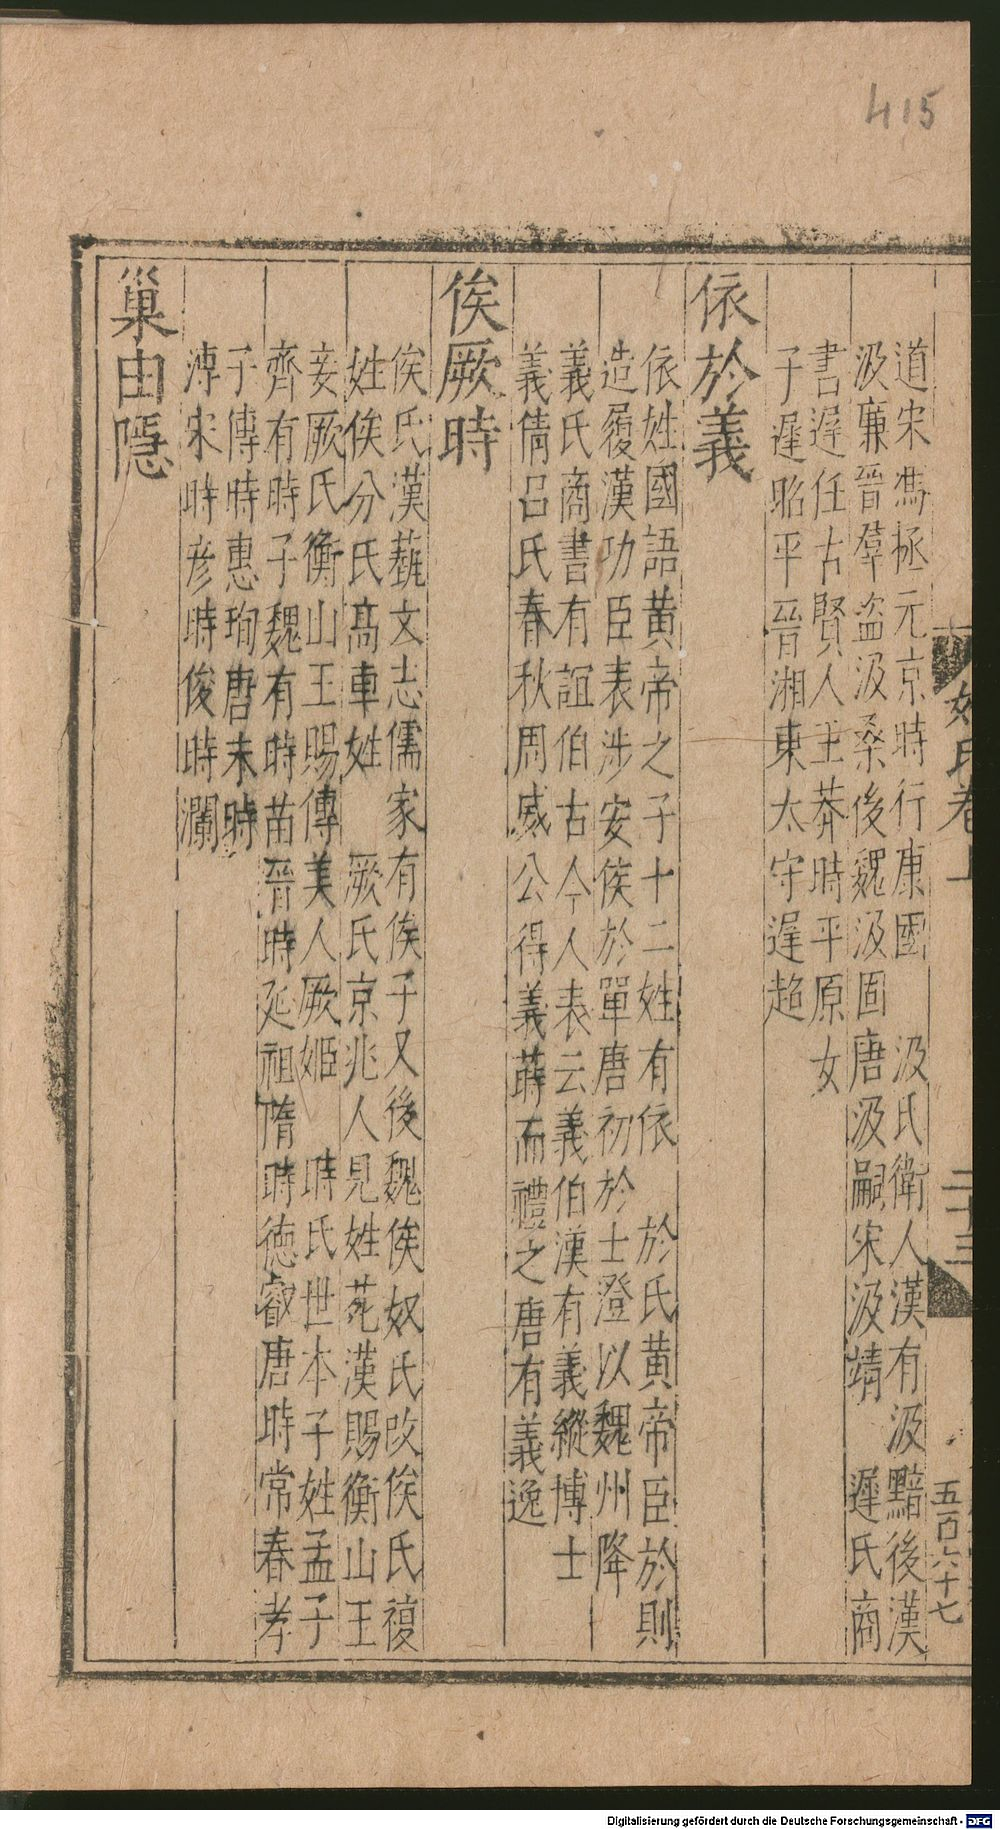 415
姓氏卷上
二十三
五百六十七
道宋馮拯元京時行康國　汲氏衛人漢有汲黯後漢
汲廉晉羣盗汲桑後魏汲固唐汲嗣宋汲靖　遲氏商
書遲任古賢人王莽時平原女
子遲昭平晉湘東太守遲超
依於義
依姓國語黄帝之子十二姓有依　於氏黄帝臣於則
造履漢功臣表涉安侯於單唐初於士澄以魏州降
義氏商書有誼伯古今人表云義伯漢有義縱博士
義倩吕氏春秋周威公得義蒔而禮之唐有義逸
俟厥時
俟氏漢蓺文志儒家有俟子又後魏俟奴氏改俟氏複
姓俟分氏髙車姓　厥氏京兆人見姓苑漢賜衡山王
妾厥氏衡山王賜傳美人厥姬　時氏世本子姓孟子
齊有時子魏有時苗晉時延祖隋時德叡唐時常春孝
子傳時惠珣唐末時
溥宋時彦時俊時瀾
巢由隠
Digitalisierung gefördert durch die Deutsche Forschungsgemeinschaft - DFG